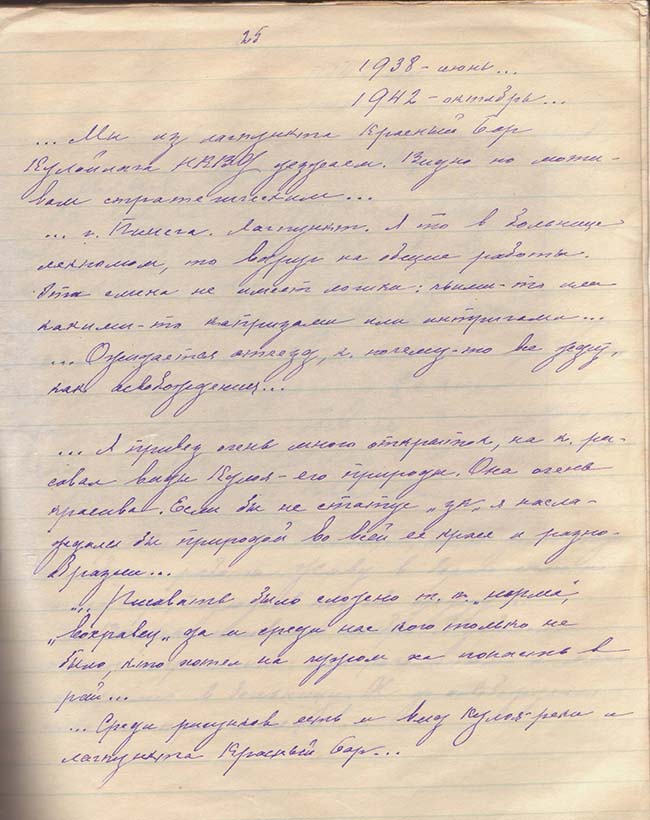 25
1938 - июнь...
1942 - октябрь...
... Мы из лагпункта Красный бор
Кулойлага НКВД уезжаем. Видно по моти-
вам стратегическим...
... г. Пинега. Лагпункт. Я то в больнице
лекпомом, то вдруг на общие работы.
Эта смена не имеет логики: чьими-то или
какими-то капризами или интригами...
... Ожидается отъезд, к. почему-то все ждут,
как освобождения...
... Я привез очень много открыток, на к. ри-
совал виды Кулоя - его природы. Она очень
красива. Если бы не статус „зк", я насла-
ждался бы природой во всей ее красе и разно-
образии...
... Рисовать было сложно т. к. „норма",
да и среди нас кого только не
было, кто хотел на чужом попасть в
рай...
... Среди рисунков есть и вид Кулоя-реки и
лагпункта Красный бор...